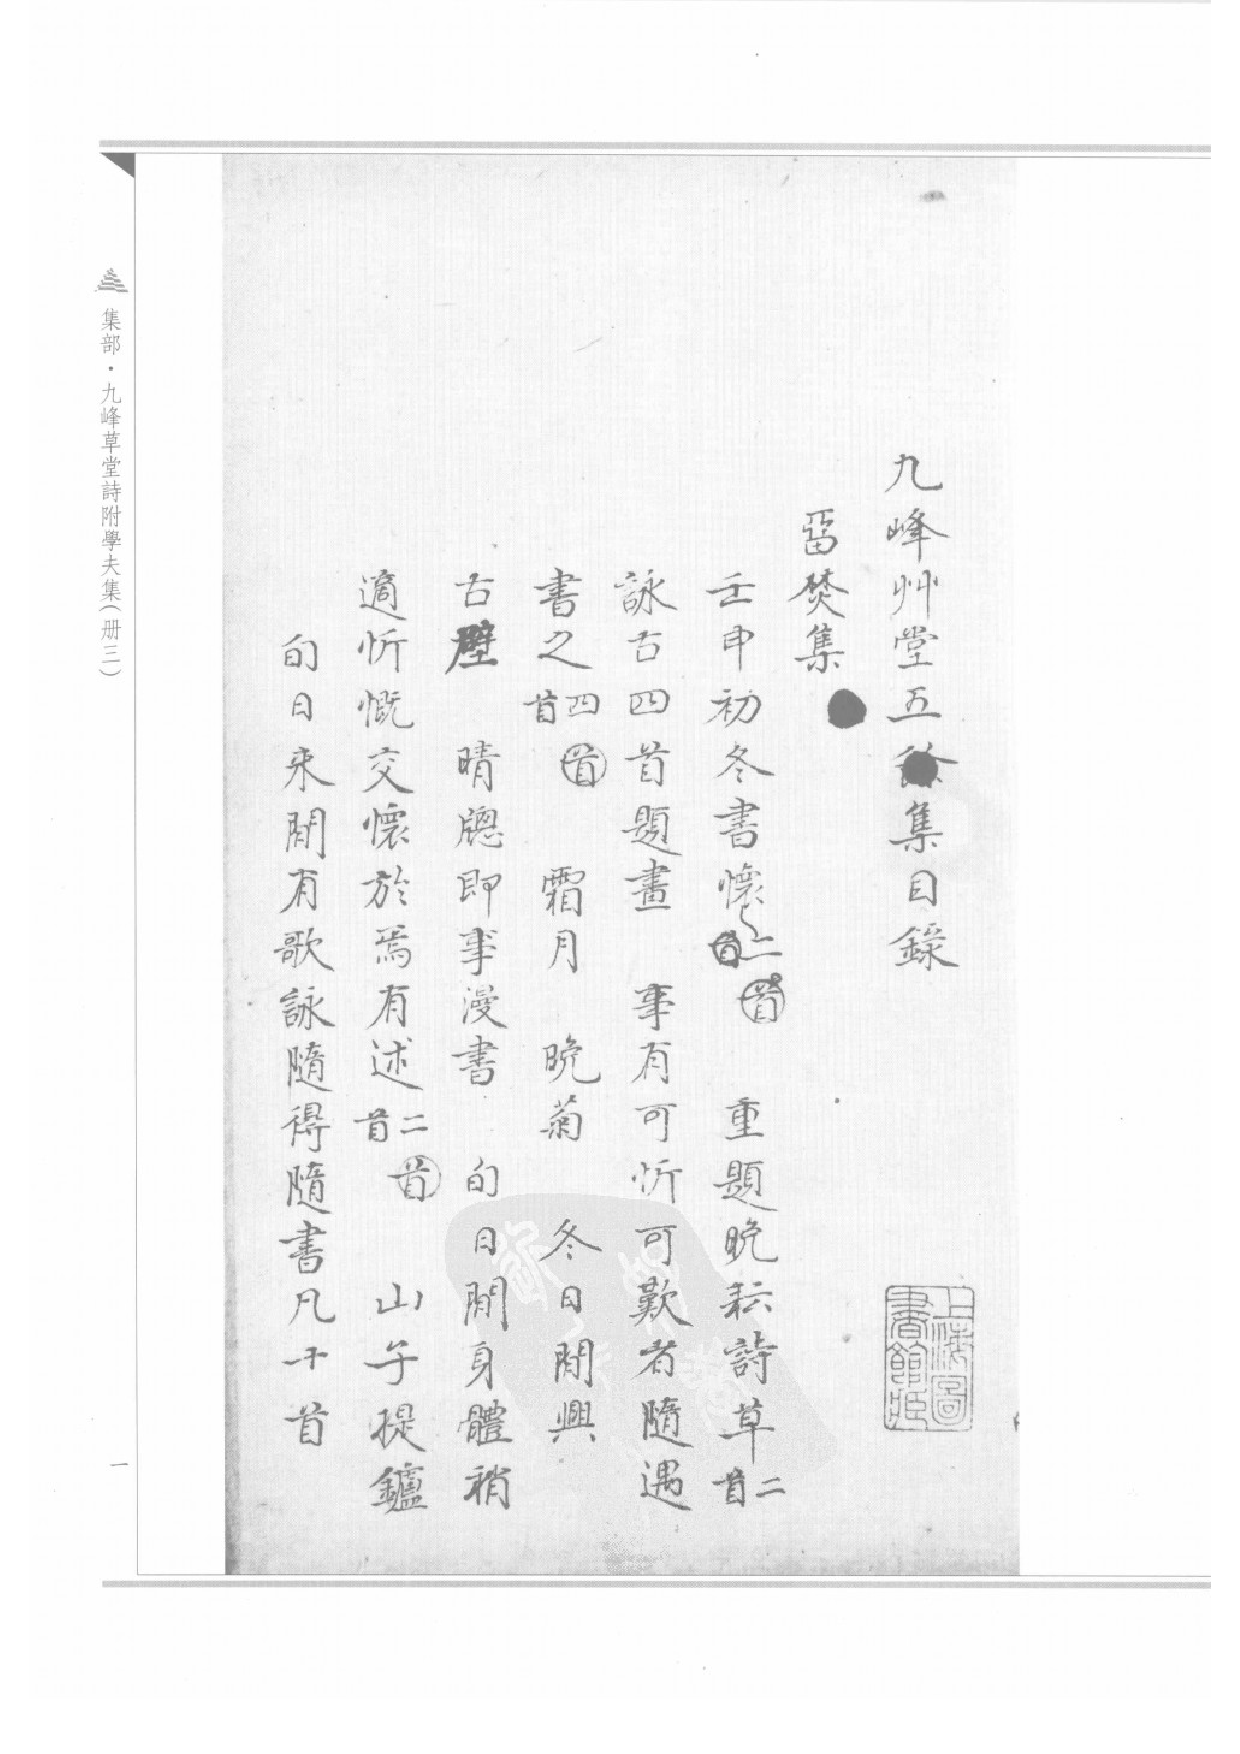 九峰艸堂五集目錄
畱焚集
壬申初冬書懷二首 重題晚耘詩草二首
詠古四首題畫 事有可忻可歎者隨遇
書之四首 霜月 晚菊 冬日閒興
古壁 晴牕即事漫書 旬日閒身體稍
適忻慨交懷於焉有述二首 山子提鑪
旬日來閒有歌詠隨得隨書凡十首
上海圖書館藏
集部·九峰草堂詩附學夫集(册三)
一